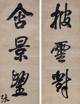 披雲對
含景望